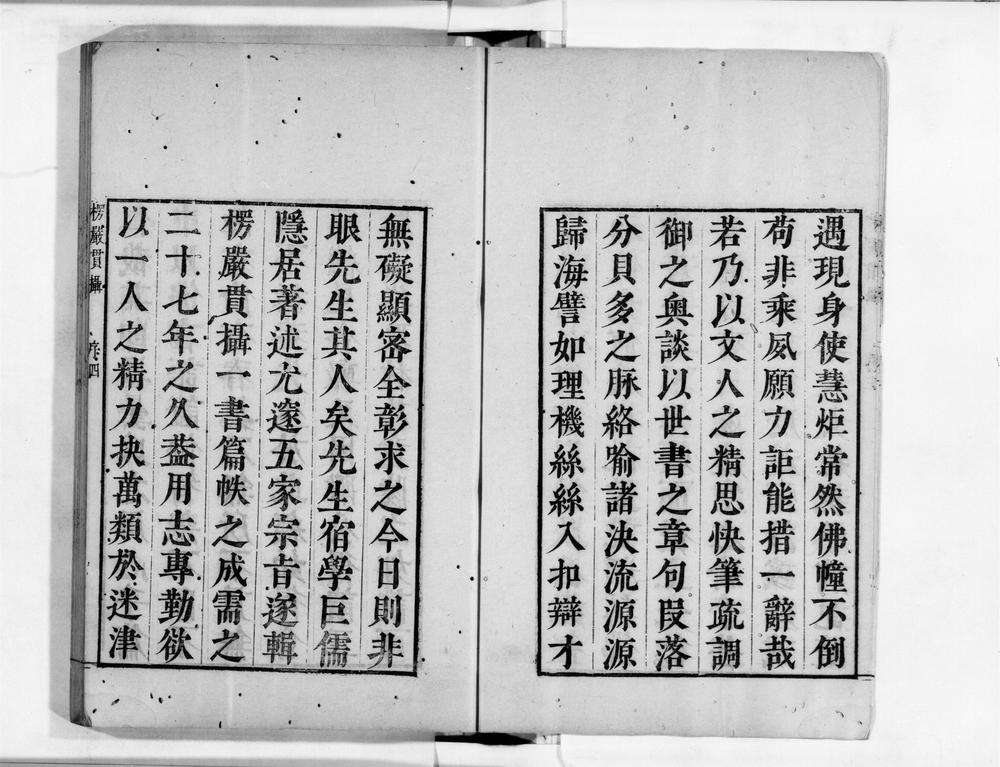 遇現身使慧炬常然佛幢不倒
苟非乘夙願力詎能措一辭哉
若乃以文人之精思快筆疏調
御之奧談以世書之章句段落
分貝多之脉絡喻諸決流源源
歸海譬如理機絲絲入扣辯才
無礙顯密全彰求之今日則非
眼先生其人矣先生宿學巨儒
隱居著述尤邃五家宗旨遂輯
楞嚴貫攝一書篇帙之成需之
二十七年之久葢用志專勤欲
以一人之精力抉萬類於迷津
楞嚴貫攝 序 四